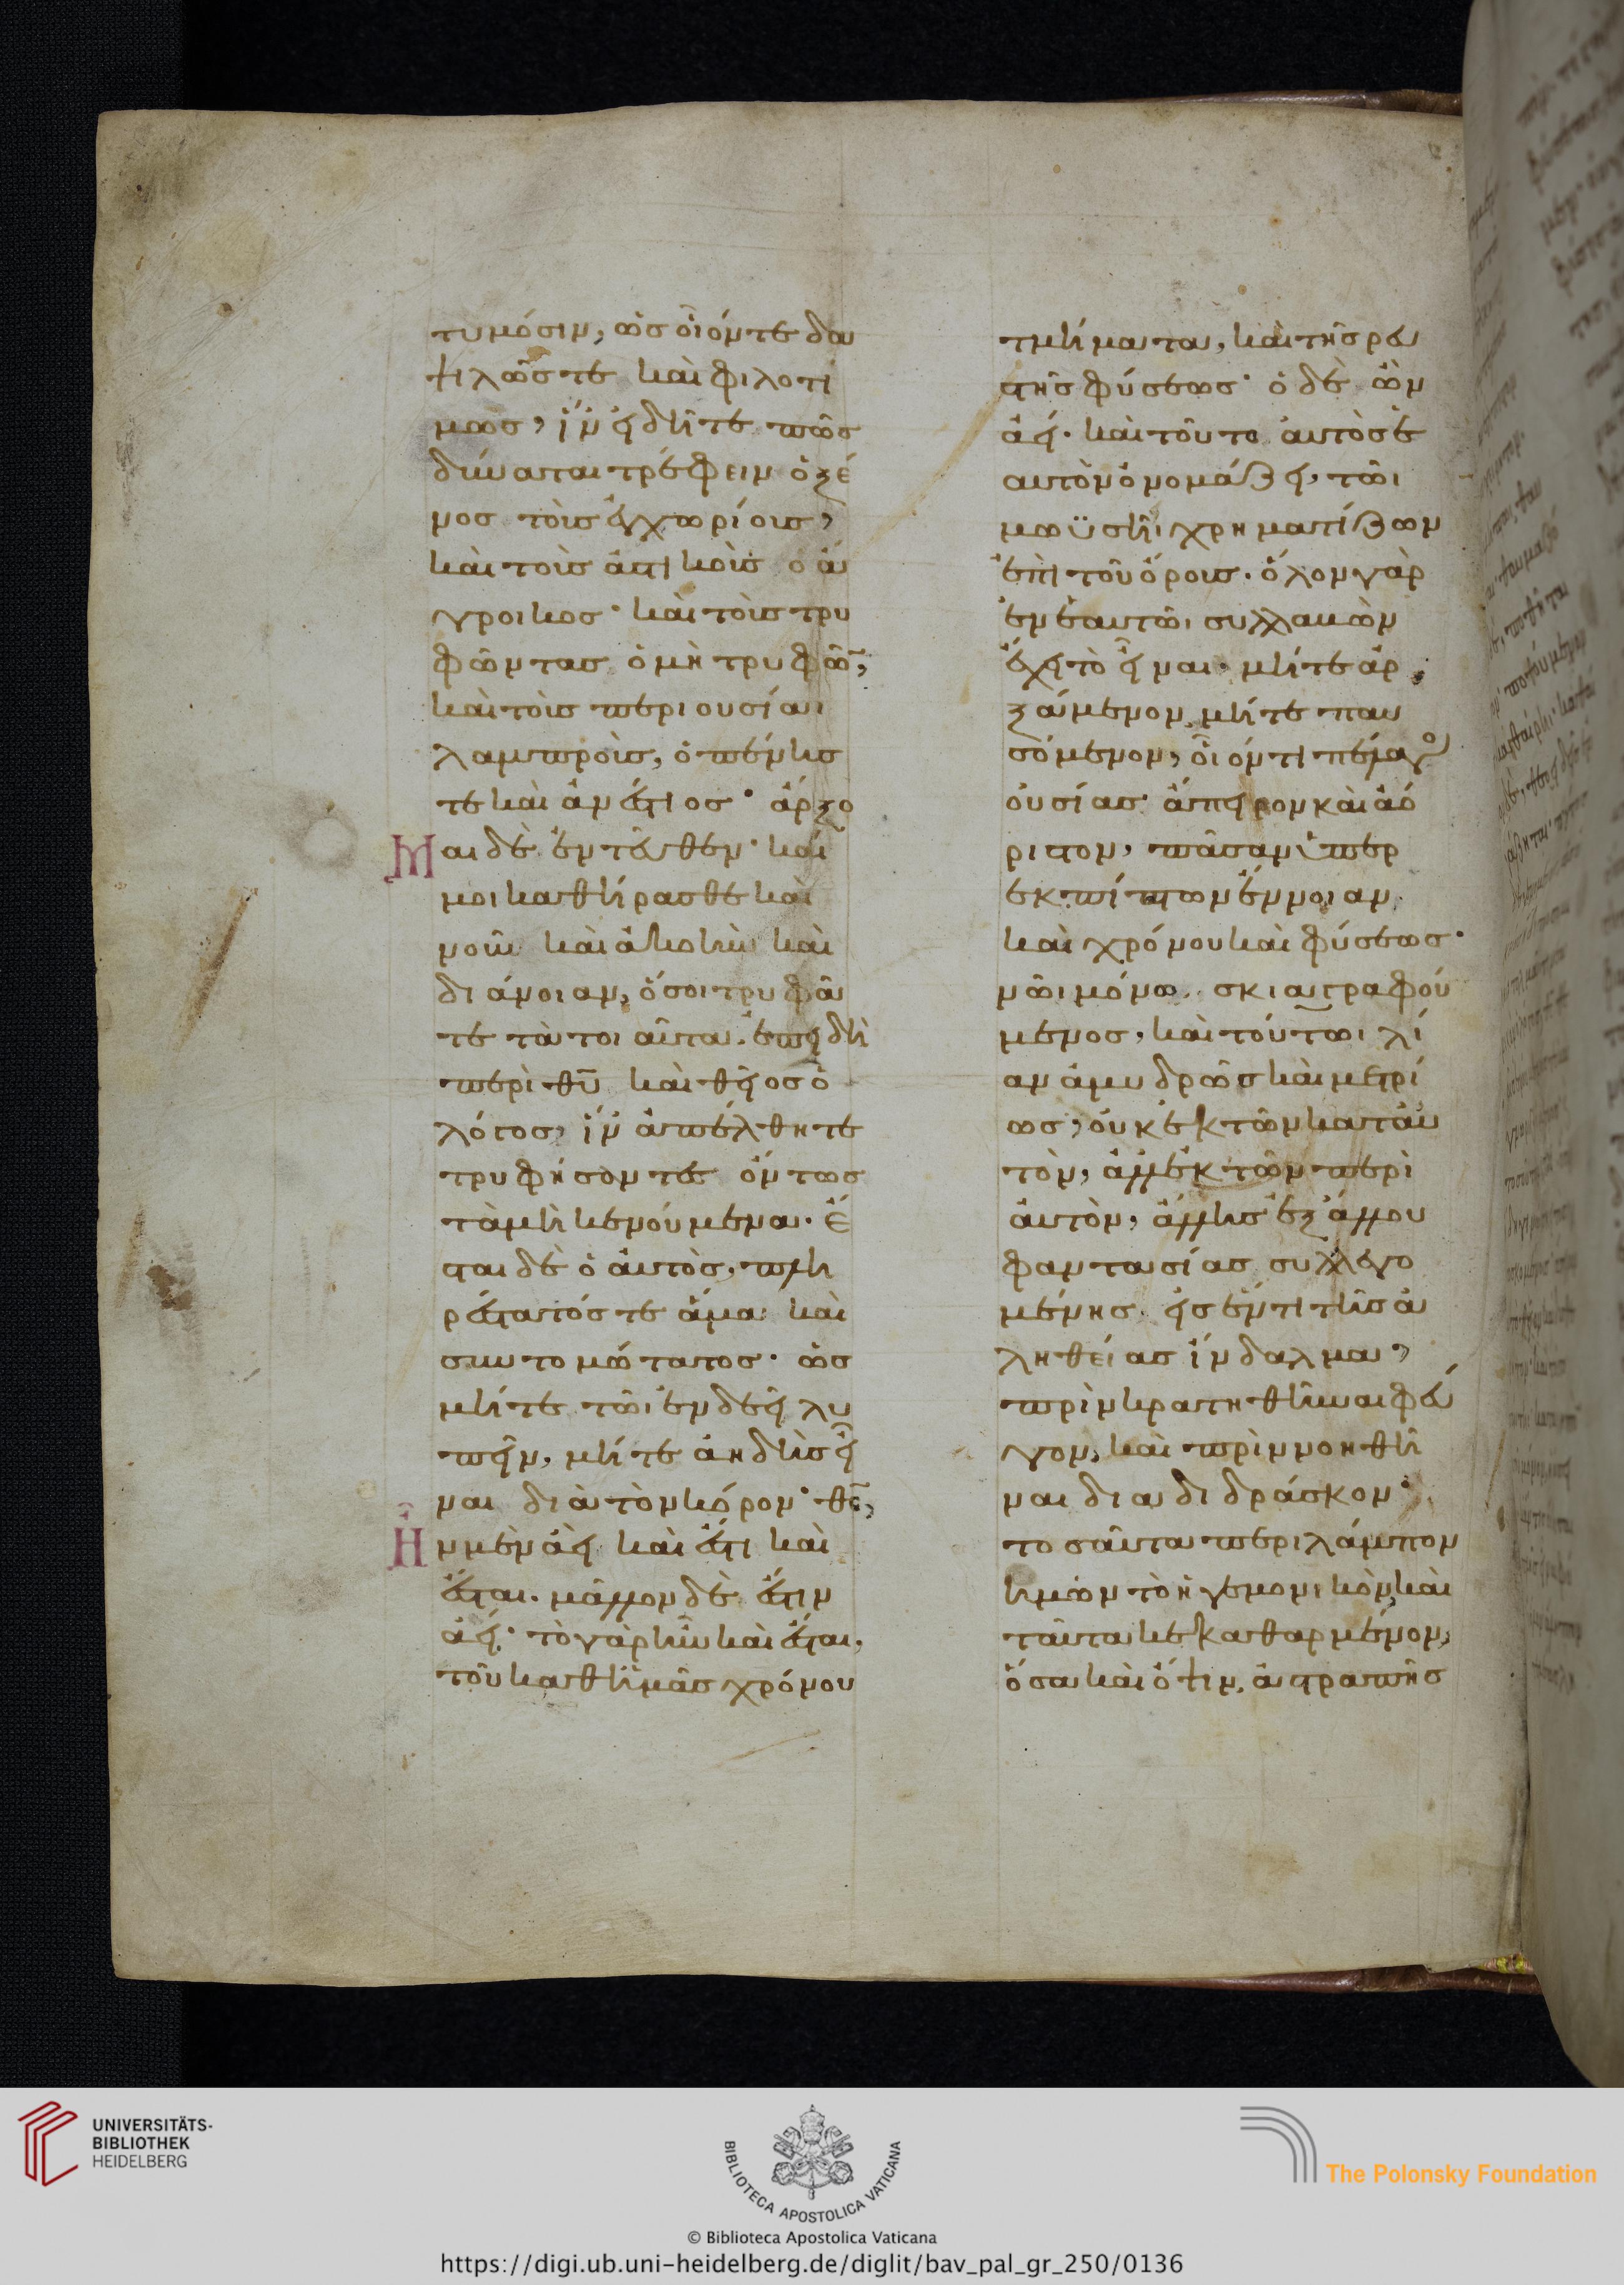 τυμόσιν, ὡς οἷόν τε δα
ψιλῶς τε καὶ φιλοτί
μως, ἵν' εἰδῆτε πῶς
δύναται τρέφειν ὁ ξέ
νος τοὺς ἐγχωρίους,
καὶ τοὺς ἀστικοὺς ὁ ἄ
γροικος· καὶ τοὺς τρυ
φῶντας ὁ μὴ τρυφῶ̅,
καὶ τοὺς περιουσίαι
λαμπροὺς, ὁ πένης
τε καὶ ἀνέστιος· ἄρξο
Μαι δὲ ἐντεῦθεν· καί
μοι καθήρασθε καὶ
νοῦν καὶ ἀκοὴν καὶ
διάνοιαν, ὅσοι τρυφᾶ
τε τὰ τοιαῦτα. ἐπειδὴ
περὶ θ̅υ̅ καὶ θεῖος ὁ
λόγος, ἵν' ἀπέλθητε
τρυφήσοντες ὄντως
τὰ μὴ κενούμενα. Ἔ
σται δὲ ὁ αὐτὸς, πλη
ρέστατός τε ἅμα καὶ
συντομώτατος. ὡς
μήτε τῶι ἐνδεεῖ λυ
πεῖν, μήτε ἀηδὴς εἶ
ναι διὰ τὸν κόρον· θ̅ς̅,
Ἦν μὲν ἀεὶ καὶ ἔστι καὶ
ἔσται. μᾶλλον δὲ ἔστιν
ἀεί· τὸ γὰρ ἦν καὶ ἔσται,
τοῦ καθ' ἡμᾶς χρόνου
τμήματα, καὶ τῆς ῥευ
στῆς φύσεως· ὁ δὲ ὢν
ἀεί. καὶ τοῦτο αὐτὸς ἑ
αυτὸν ὀνομάζει, τῶι
μωϋσῆι χρηματίζων
ἐπὶ τοῦ ὄρους. ὅλον γὰρ
ἐν ἑαυτῶι συλλαβὼν
ἔχει τὸ εἶναι. μήτε ἀρ
ξάμενον μήτε παυ
σόμενον, οἷόν τι πέλαγο
οὐσίας ἄπειρον καὶ ἀό
ριστον, πᾶσαν ὑπερ
εκπίπτων ἔννοιαν
καὶ χρόνου καὶ φύσεως·
νῶι μόνω σκιαγραφού
μενος, καὶ τούτωι λί
αν ἀμυδρῶς καὶ μετρί
ως, οὐκ ἐκ τῶν κατ' αὐ
τὸν, ἀλλ' ἐκ τῶν περὶ
αὐτὸν, ἄλλης ἐξ ἄλλου
φαντασίας συλλεγο
μένης εἰς ἕν τι τῆς ἀ
ληθείας ἴνδαλμα,
πρὶν κρατηθῆναι φεῦ
γον, καὶ πρὶν νοηθῆ
ναι διαδιδράσκον·
τοσαῦτα περιλάμπον
ἡμῶν τὸ ἡγεμονικὸν, καὶ
ταῦτα κεκαθαρμένον,
ὅσα καὶ ὄψιν, ἀστραπῆς
UNIVERSITÄTS-
BIBLIOTHEK
HEIDELBERG
BIBLIOTECA APOSTOLICA VATICANA
The Polonsky Foundation
© Biblioteca Apostolica Vaticana
https://digi.ub.uni-heidelberg.de/diglit/bav_pal_gr_250/0136